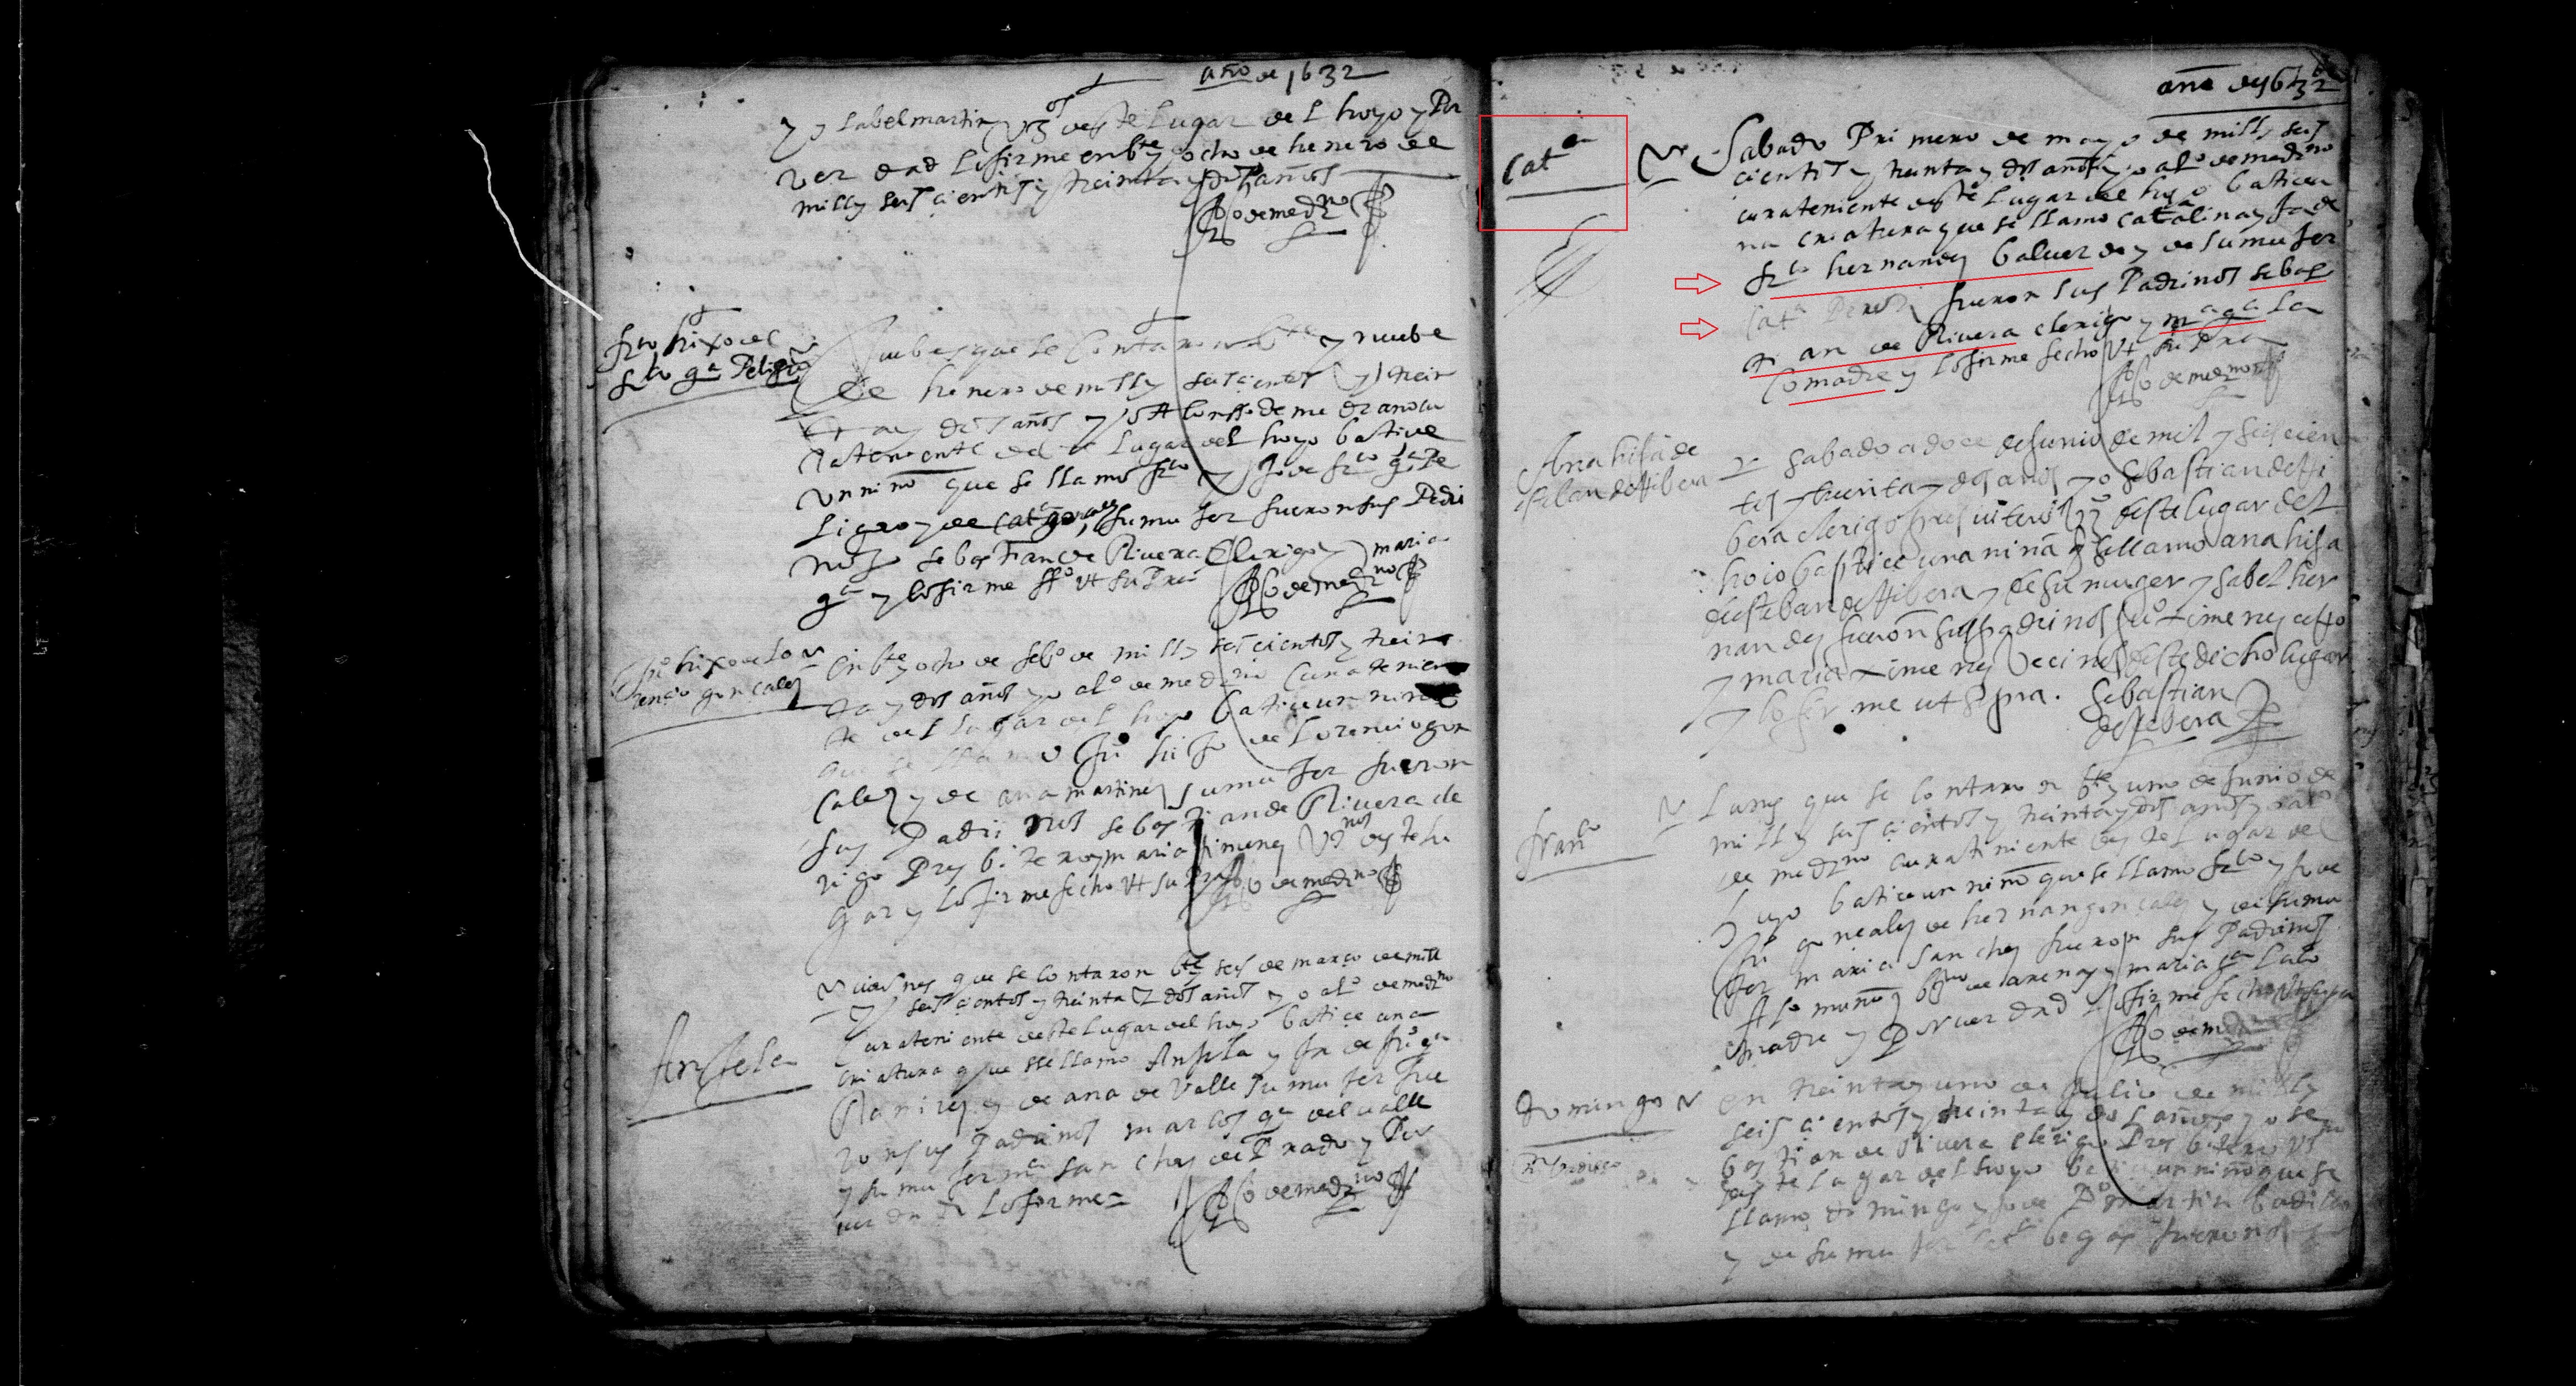 año de 1632
y ysabel martin vzos deste Lugar del hoyo y Por
verdad Lo firme en bte y ocho de henero de
mill y seisçientos y treinta y dos años
Alo de medrno
frco hixo de
frco ga Peligro
Juebes que se Contaron bte y nuebe
de henero de mill y seisçientos y trein
ta y dos años yo Alonsso de medrano cu
ra teniente deste Lugar del hoyo batiçe
Un niño que se llamo frco yjo de frco ga Pe
ligro y de cata gonçales su mujer fueron sus Padri
nos sebastian de Rivera Clerigo y maria
ga y lo firme ffo ut supra
Alo de medrno
Juo hixo de Lo
renço gonçales
En bte y ocho de febo de mill y seiscientos y trein
ta y dos años yo alo de medrno Cura tenien
te del Lugar del hoyo batiçe un niño
que se llamo Juo hijo de Lorençio gon
çales y de ana martines su mujer fueron
sus Padrinos sebastian de Rivera cle
rigo Presbitero y maria jimenes vznos deste lu
gar y lo firme fecho ut supra
Alo de medrno
Anjela
viernes que se contaron bte y seis de março de mill
y seisçientos y treinta y dos años yo alo de medrno
Cura teniente deste Lugar del hoyo batiçe una
criatura que sse llamo Anjela yja de Juo ga
Ramires y de ana de Valle su mujer fue
ron sus Padrinos marcos ga del valle
y su mujer ma sanches de Prado y Por
verdad Lo firme
Alo de medrno
año de 1632
Cata
Sabado Primero de mayo de mill y seis
cientos y treinta y dos años yo alo de medrno
cura teniente deste Lugar del hoyo batiçe u
na criatura que se llamo Catalina yja de
frco hernandes balverde y de su mujer
Cata Peres fueron sus Padrinos sebas
tian de Rivera clerigo y ma ga La
Comadre y lo firme fecho ut supra
Alo de medrno
Ana hija de
esteban de Ribera
Sabado a doce de Junio de mil y seiscien
tos y treinta y dos años yo Sebastian de Ri
bera clerigo presvitero vzo deste lugar del
hoio baptice una niña q se llamo ana hija
de esteban de Ribera y de su muger ysabel her
nandez fueron sus padrinos Juo ximenez
y maria ximenez vecinos deste dicho lugar
y lo firme ut supra. Sebastian
de Ribera
franco
Lunes que se contaron bte y uno de Junio de
mill y seisçientos y treinta y dos años yo alo
de medrno cura teniente deste Lugar del
hoyo batiçe un niño que se llamo frco yjo de
Juo gonçales de hernan gonçales y de su mu
jer maria sanches fueron sus Padrinos
Alo muños de arenas y maria ga La co
madre y Por verdad Lo firme fecho ut supra
Alo de medrno
Domingo
en treinta y uno de Julio de mill y
seisçientos y treinta y dos años yo se
bastian de Rivera clerigo Presbitero vzno
deste Lugar del hoyo batiçe un niño que se
llamo domingo yjo de Po martin badillo
y de su mujer fueron